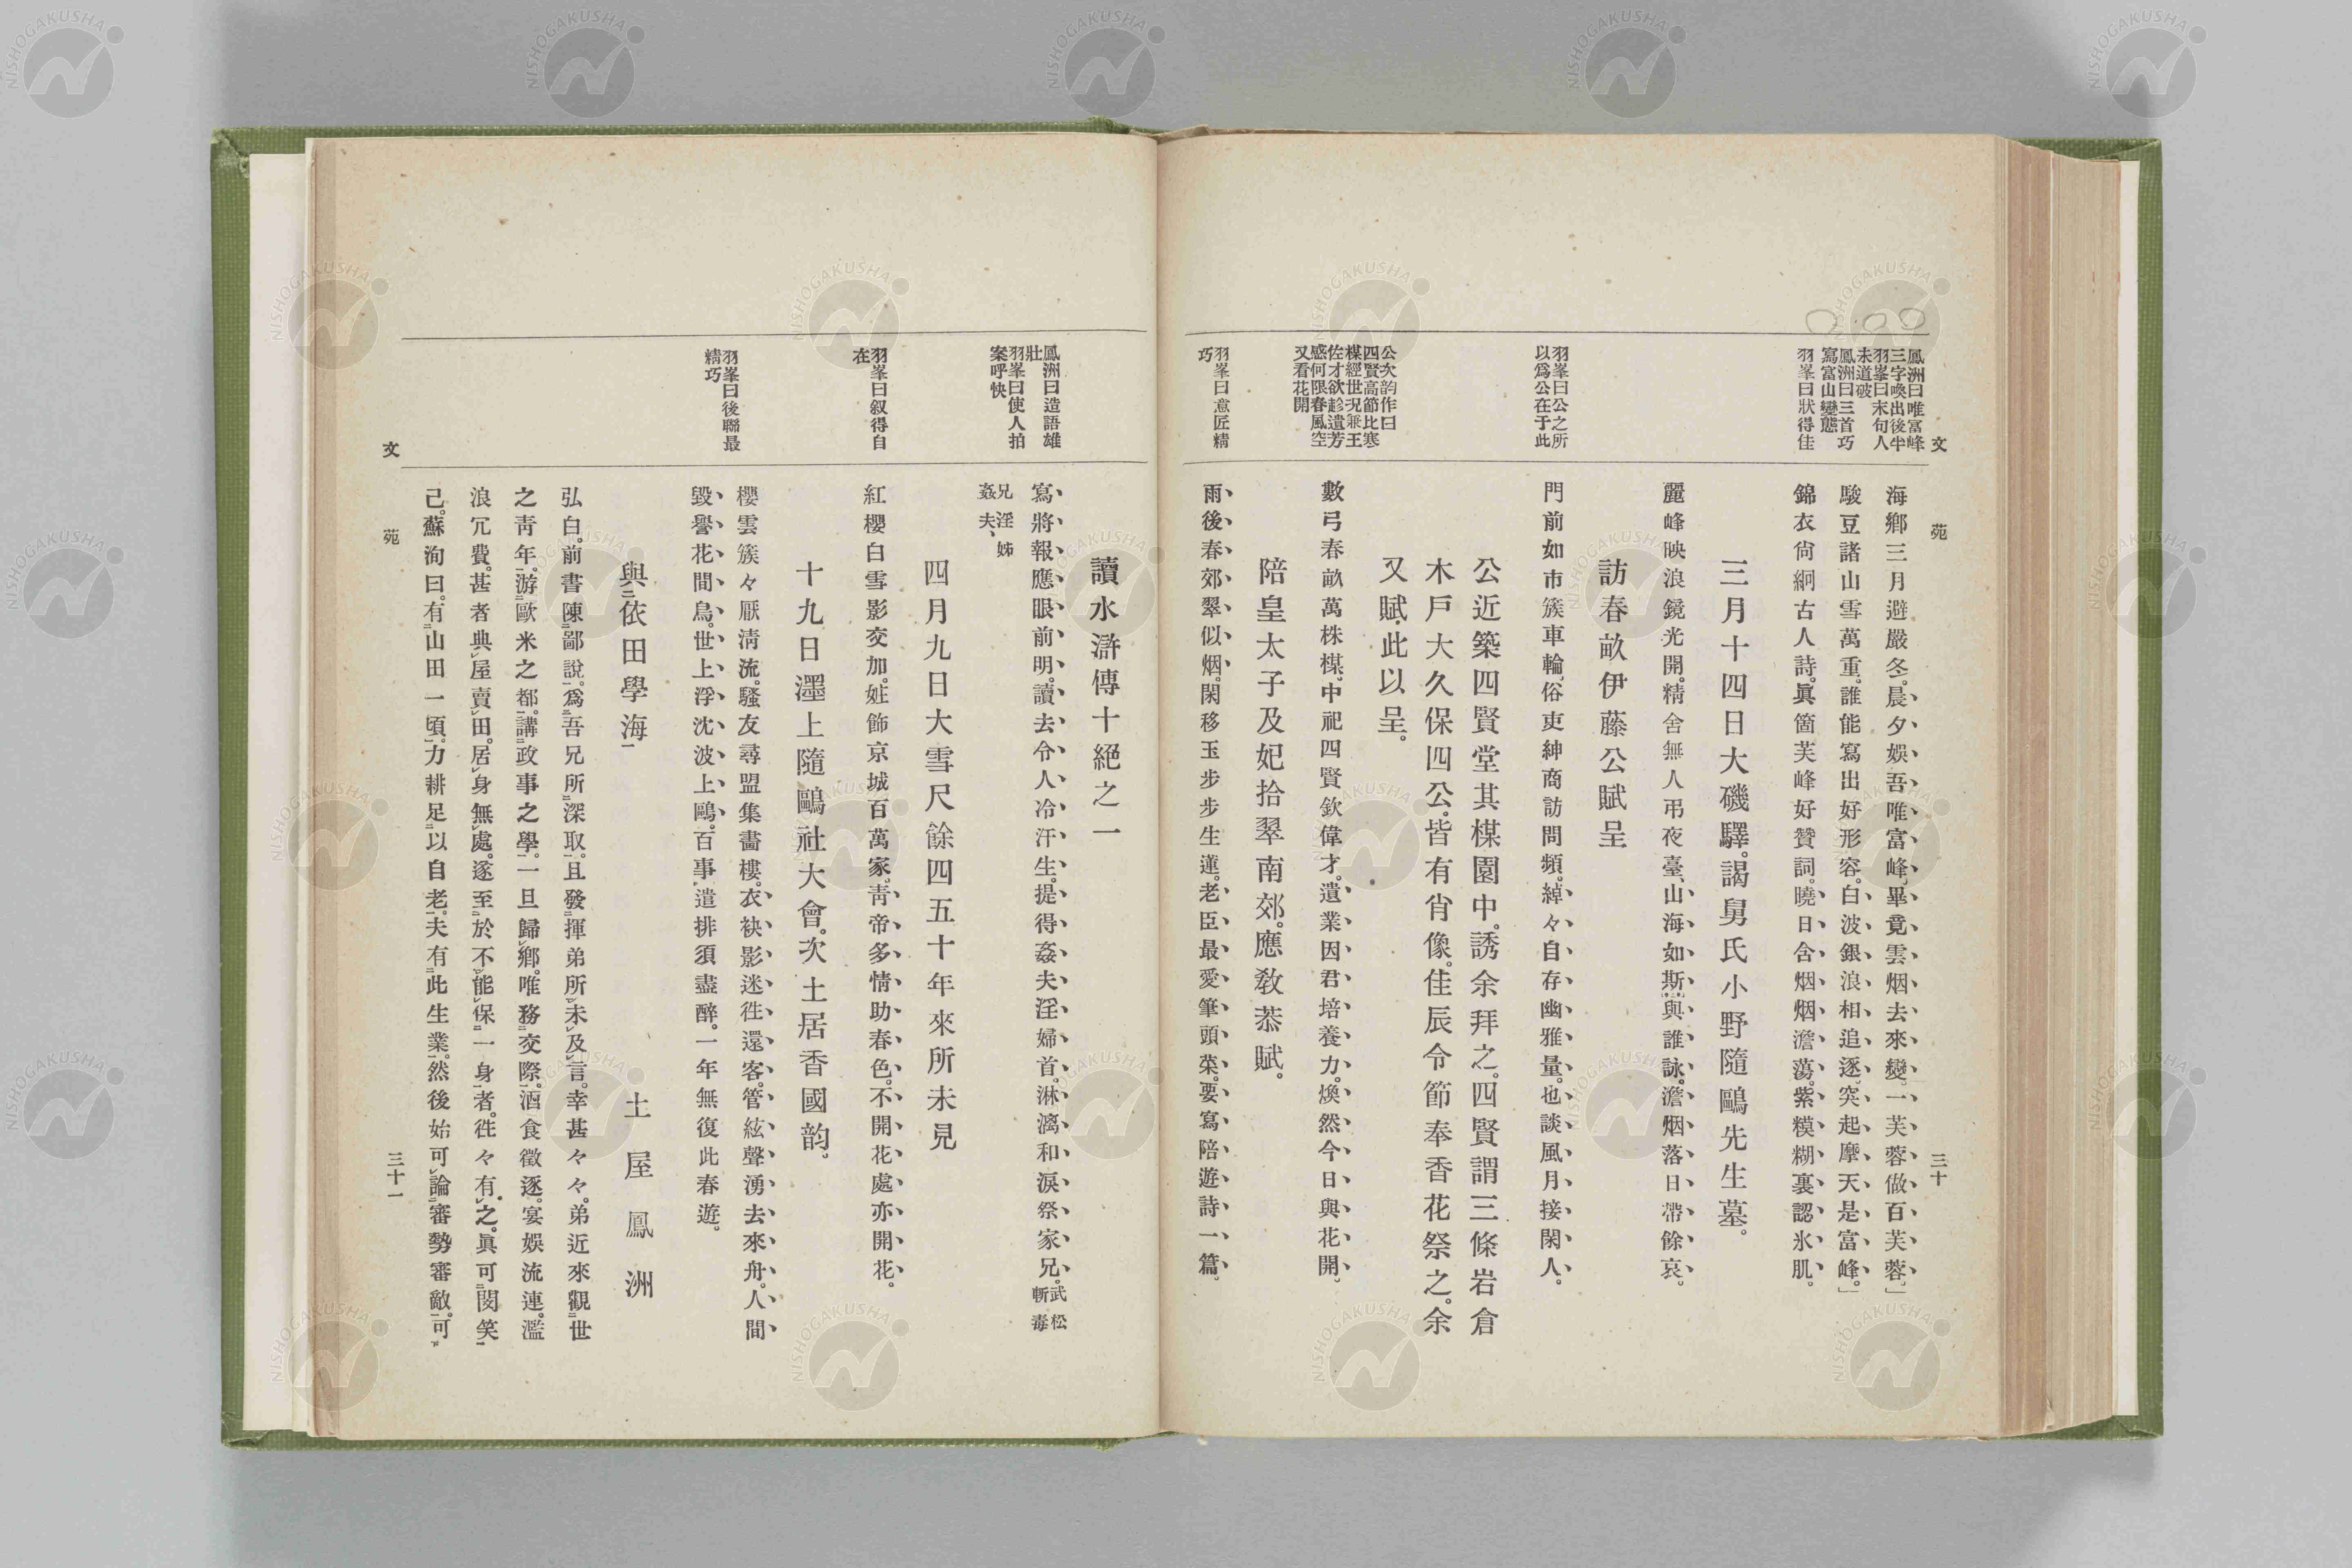 文
苑
三十
鳳洲曰唯富峰
三字喚出後半
羽峯曰末句人
未道破
鳳洲曰三首巧
寫富山變態
羽峯曰狀得佳
海鄕三月避嚴冬。晨夕娛吾唯富峰。畢竟雲烟去來變。一芙蓉做百芙蓉。」
駿豆諸山雪萬重。誰能寫出好形容。白波銀浪相追逐。突起摩天是富峰。」
錦衣尙絅古人詩。眞箇芙峰好贊詞。曉日含烟烟澹蕩。紫糢糊裏認氷肌。
三月十四日大磯驛。謁舅氏小野隨鷗先生墓。
麗峰映浪鏡光開。精舍無人弔夜臺。山海如斯與誰詠。澹烟落日帶餘哀。
訪春畝伊藤公賦呈
羽峯曰公之所
以爲公在于此
門前如市簇車輪。俗吏紳商訪問頻。綽々自存幽雅量。也談風月接閑人。
公近築四賢堂其楳園中。誘余拜之。四賢謂三條岩倉
木戶大久保四公。皆有肖像。佳辰令節奉香花祭之。余
又賦此以呈。
公次韵作曰
四賢高節比寒
楳經世況兼王
佐才欲趁遺芳
感何限春風空
又看花開
數弓春畝萬株楳。中祀四賢欽偉才。遺業因君培養力。煥然今日與花開。
陪皇太子及妃拾翠南郊。應敎恭賦。
羽峯曰意匠精
巧
雨後春郊翠似烟。閑移玉步步生蓮。老臣最愛筆頭菜。要寫陪遊詩一篇。
讀水滸傳十絕之一
鳳洲曰造語雄
壯
羽峯曰使人拍
案呼快
寫將報應眼前明。讀去令人冷汗生。提得姦夫淫婦首。淋漓和淚祭家兄。武松
斬毒
兄淫姊
姦夫、
四月九日大雪尺餘四五十年來所未見
羽峯曰叙得自
在
紅櫻白雪影交加。妝飾京城百萬家。靑帝多情助春色。不開花處亦開花。
十九日墨上隨鷗社大會。次土居香國韵。
羽峯曰後聯最
精巧
櫻雲簇々厭淸流。騷友尋盟集畵樓。衣袂影迷徃還客。管絃聲湧去來舟。人間
毀譽花間鳥。世上浮沈波上鷗。百事遣排須盡醉。一年無復此春遊。
與依田學海
土屋鳳洲
弘白。前書陳鄙說。爲吾兄所深取。且發揮弟所未及言。幸甚々々。弟近來觀世
之靑年。游歐米之都。講政事之學。一旦歸鄕。唯務交際。酒食徵逐。宴娛流連。濫
浪冗費。甚者典屋賣田。居身無處。遂至於不能保一身者。徃々有之。眞可閔笑
己。蘇洵曰。有山田一頃。力耕足以自老。夫有此生業。然後始可論審勢審敵。可
文
苑
三十一